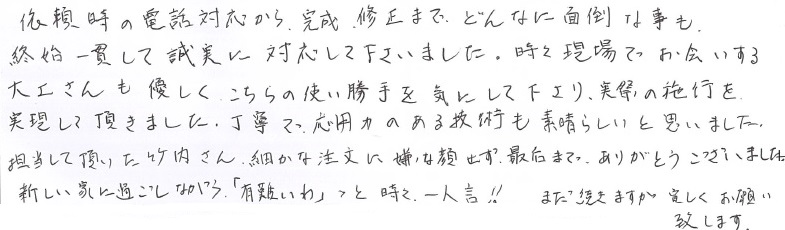 依頼時の電話対応から、完成、修正まで、どんなに面倒な事も、
終始一貫して誠実に対応して下さいました。時々現場でお会いする
大工さんも優しく、こちらの使い勝手を気にして下より、実際の施行を
実現して頂きました。丁寧で、応用力のある技術も素晴らしいと思いました。
担当して頂いた竹内さん、細かな注文に嫌な顔せず、最后まで、ありがとうございました。
新しい家に過ごしながら、「有難いわ」っと時々、一人言!!
まだ続きますが宜しくお願い
致します。